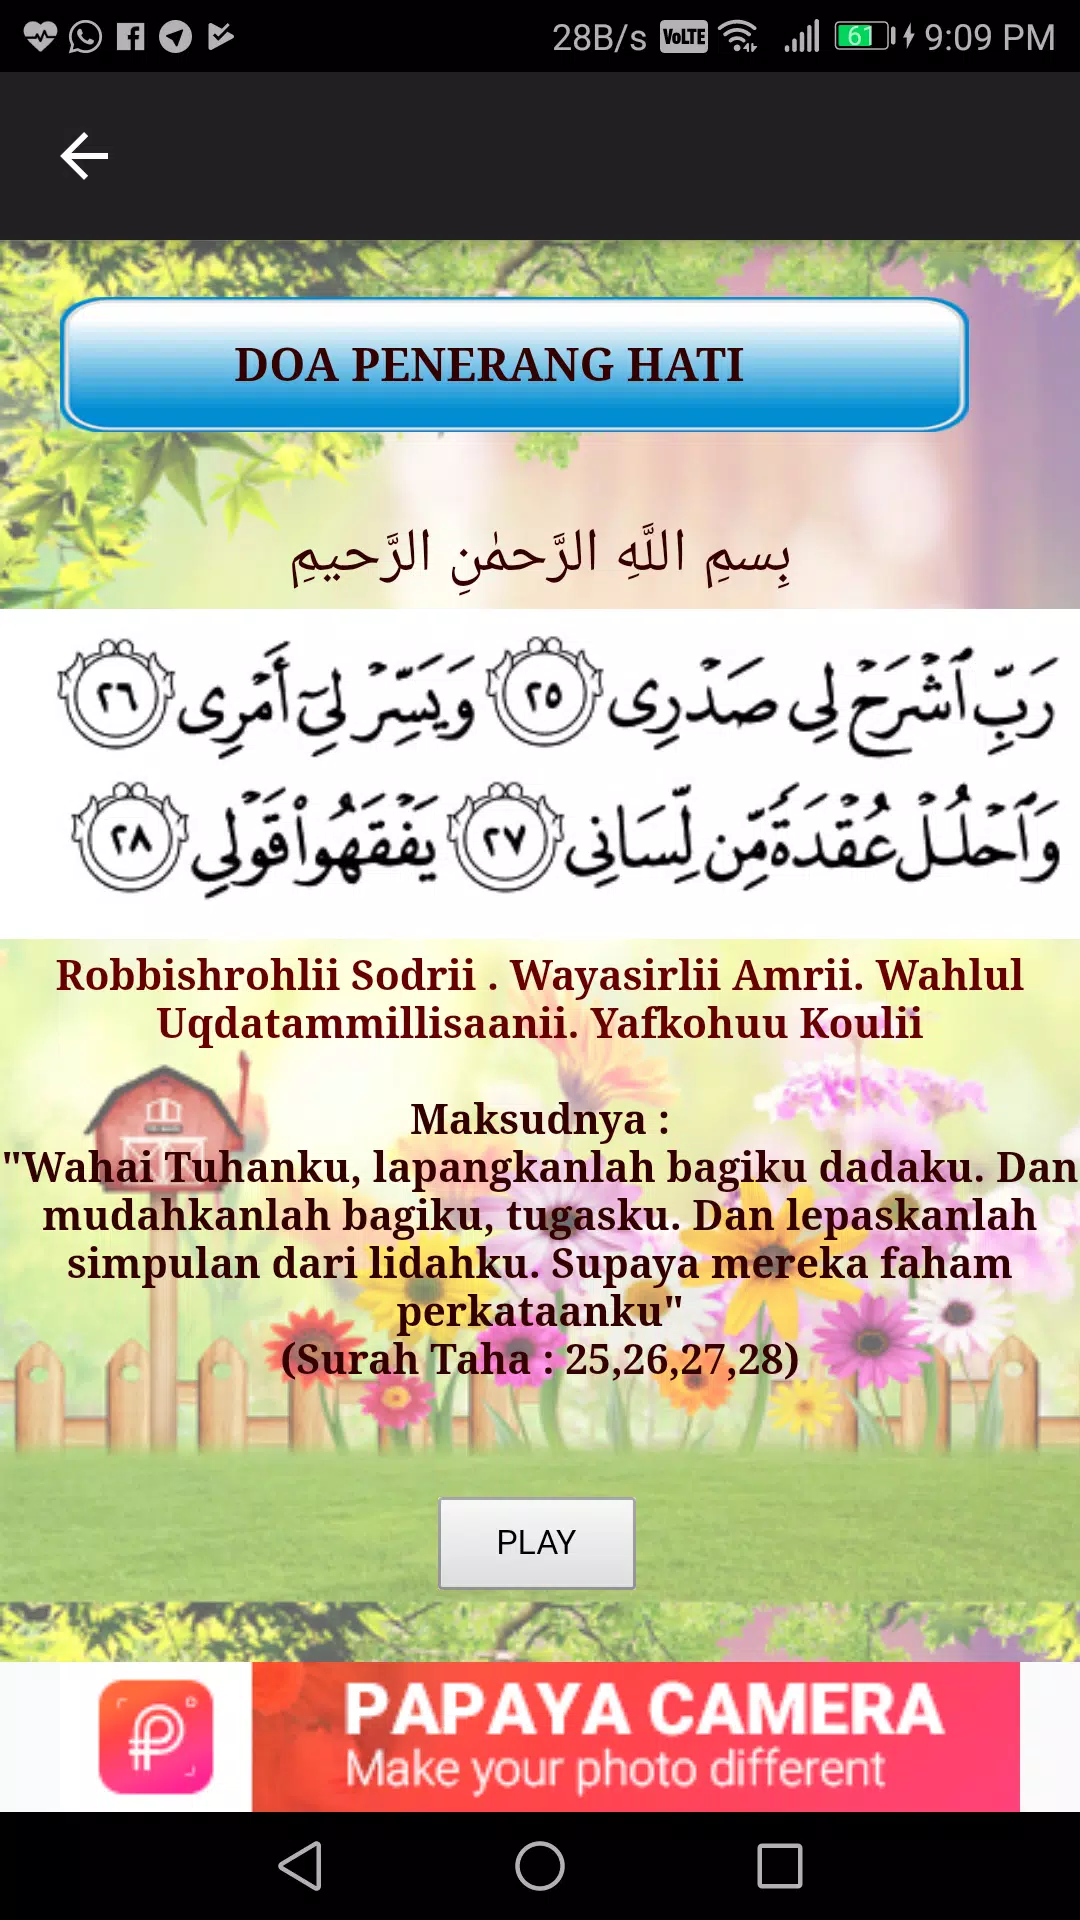 28B/s VoLTE 61 9:09 PM
DOA PENERANG HATI
بِسمِ اللَّهِ الرَّحمٰنِ الرَّحيمِ
رَبِّ ٱشْرَحْ لِى صَدْرِى ٢٥ وَيَسِّرْ لِىٓ أَمْرِى ٢٦
وَٱحْلُلْ عُقْدَةً مِّن لِّسَانِى ٢٧ يَفْقَهُوا۟ قَوْلِى ٢٨
Robbishrohlii Sodrii . Wayasirlii Amrii. Wahlul
Uqdatammillisaanii. Yafkohuu Koulii
Maksudnya :
"Wahai Tuhanku, lapangkanlah bagiku dadaku. Dan
mudahkanlah bagiku, tugasku. Dan lepaskanlah
simpulan dari lidahku. Supaya mereka faham
perkataanku"
(Surah Taha : 25,26,27,28)
PLAY
PAPAYA CAMERA
Make your photo different